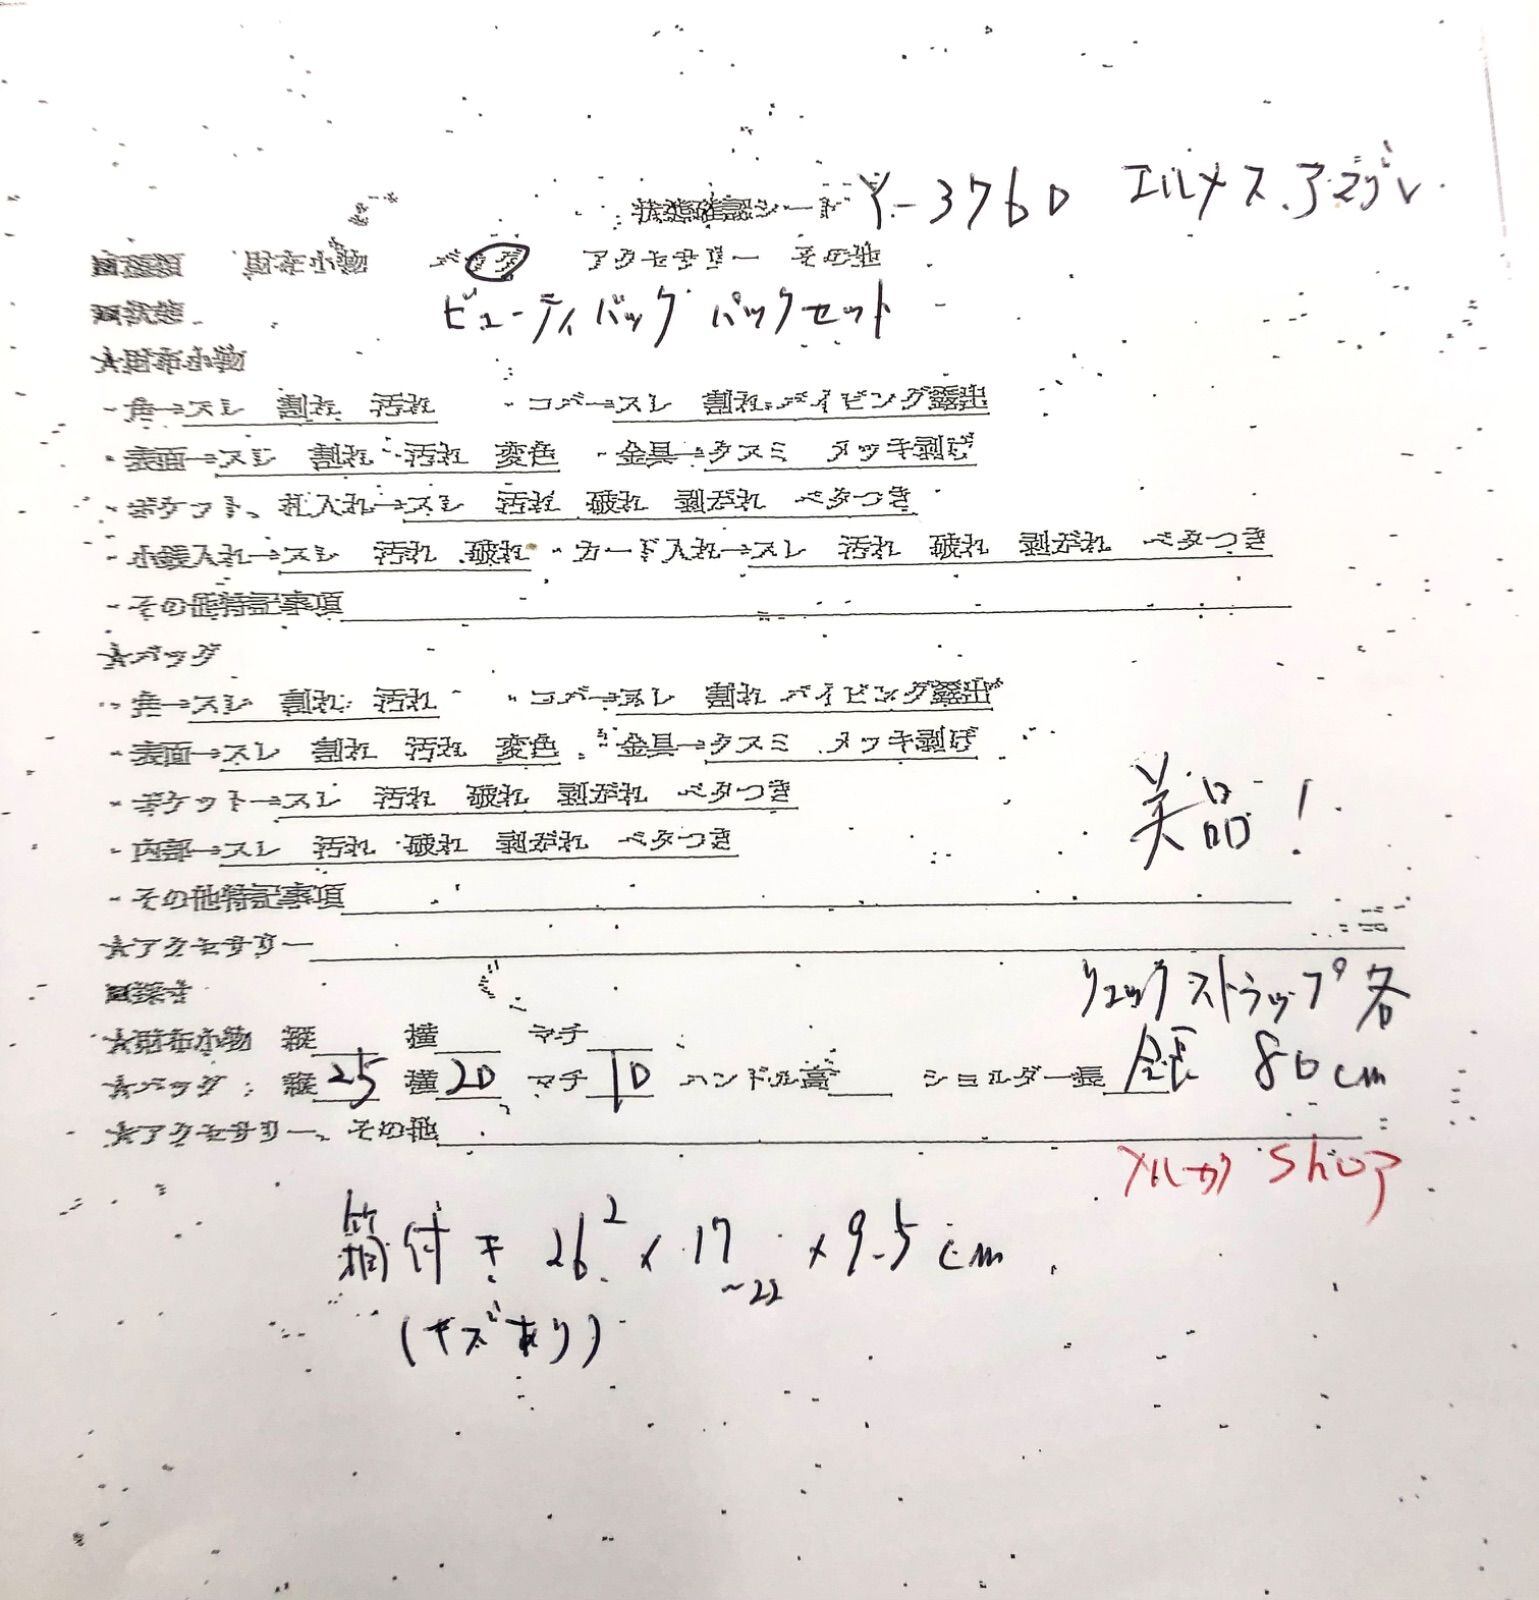 状態確認シート Y-3760 エルメス.アマゾン
■種類 財布小物 バッグ アクセサリー その他
■状態 ビューティバッグ バックセット
★財布小物
・角→スレ 割れ 汚れ ・コバ→スレ 割れ パイピング露出
・表面→スレ 割れ 汚れ 変色 ・金具→クスミ メッキ剥げ
・ポケット、札入れ→スレ 汚れ 破れ 剥がれ ベタつき
・小銭入れ→スレ 汚れ 破れ ・カード入れ→スレ 汚れ 破れ 剥がれ ベタつき
・その他特記事項
★バッグ
・角→スレ 割れ 汚れ ・コバ→スレ 割れ パイピング露出
・表面→スレ 割れ 汚れ 変色 ・金具→クスミ メッキ剥げ
・ポケット→スレ 汚れ 破れ 剥がれ ベタつき
美品!
・内部→スレ 汚れ 破れ 剥がれ ベタつき
・その他特記事項
★アクセサリー
■採寸 リュックストラップ各
★財布小物 縦 横 マチ
★バッグ 縦25 横20 マチ10 ハンドル高 ショルダー長 全長 80cm
★アクセサリー、その他
メルカリ Shop
箱付キ 26² × 17 × 9.5cm
~22
(キズあり)